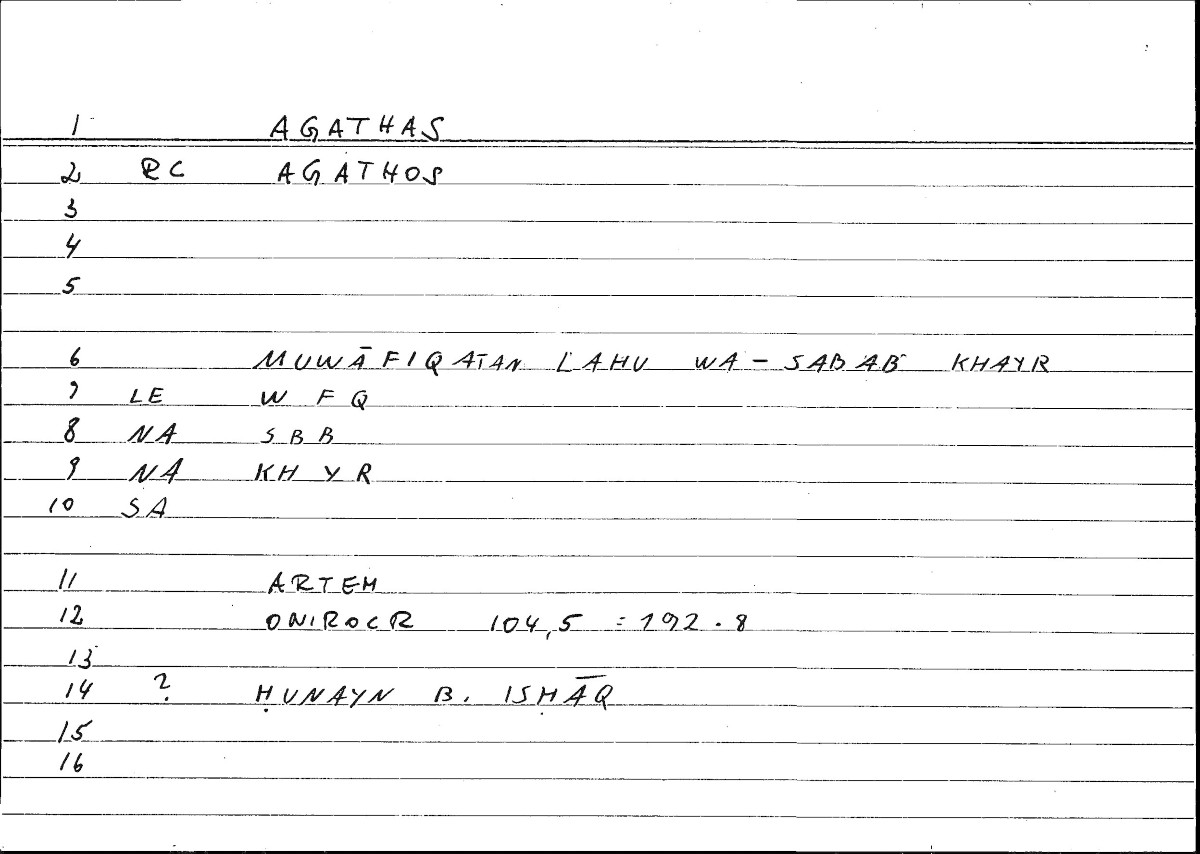 1 AGATHAS
2 RC AGATHOS
3
4
5
6 MUWĀFIQATAN LAHU WA-SABAB KHAYR
7 LE W F Q
8 NA S B B
9 NA KH Y R
10 SA
11 ARTEM
12 ONIROCR 104,5 = 192.8
13
14 ? ḤUNAYN B. ISḤĀQ
15
16